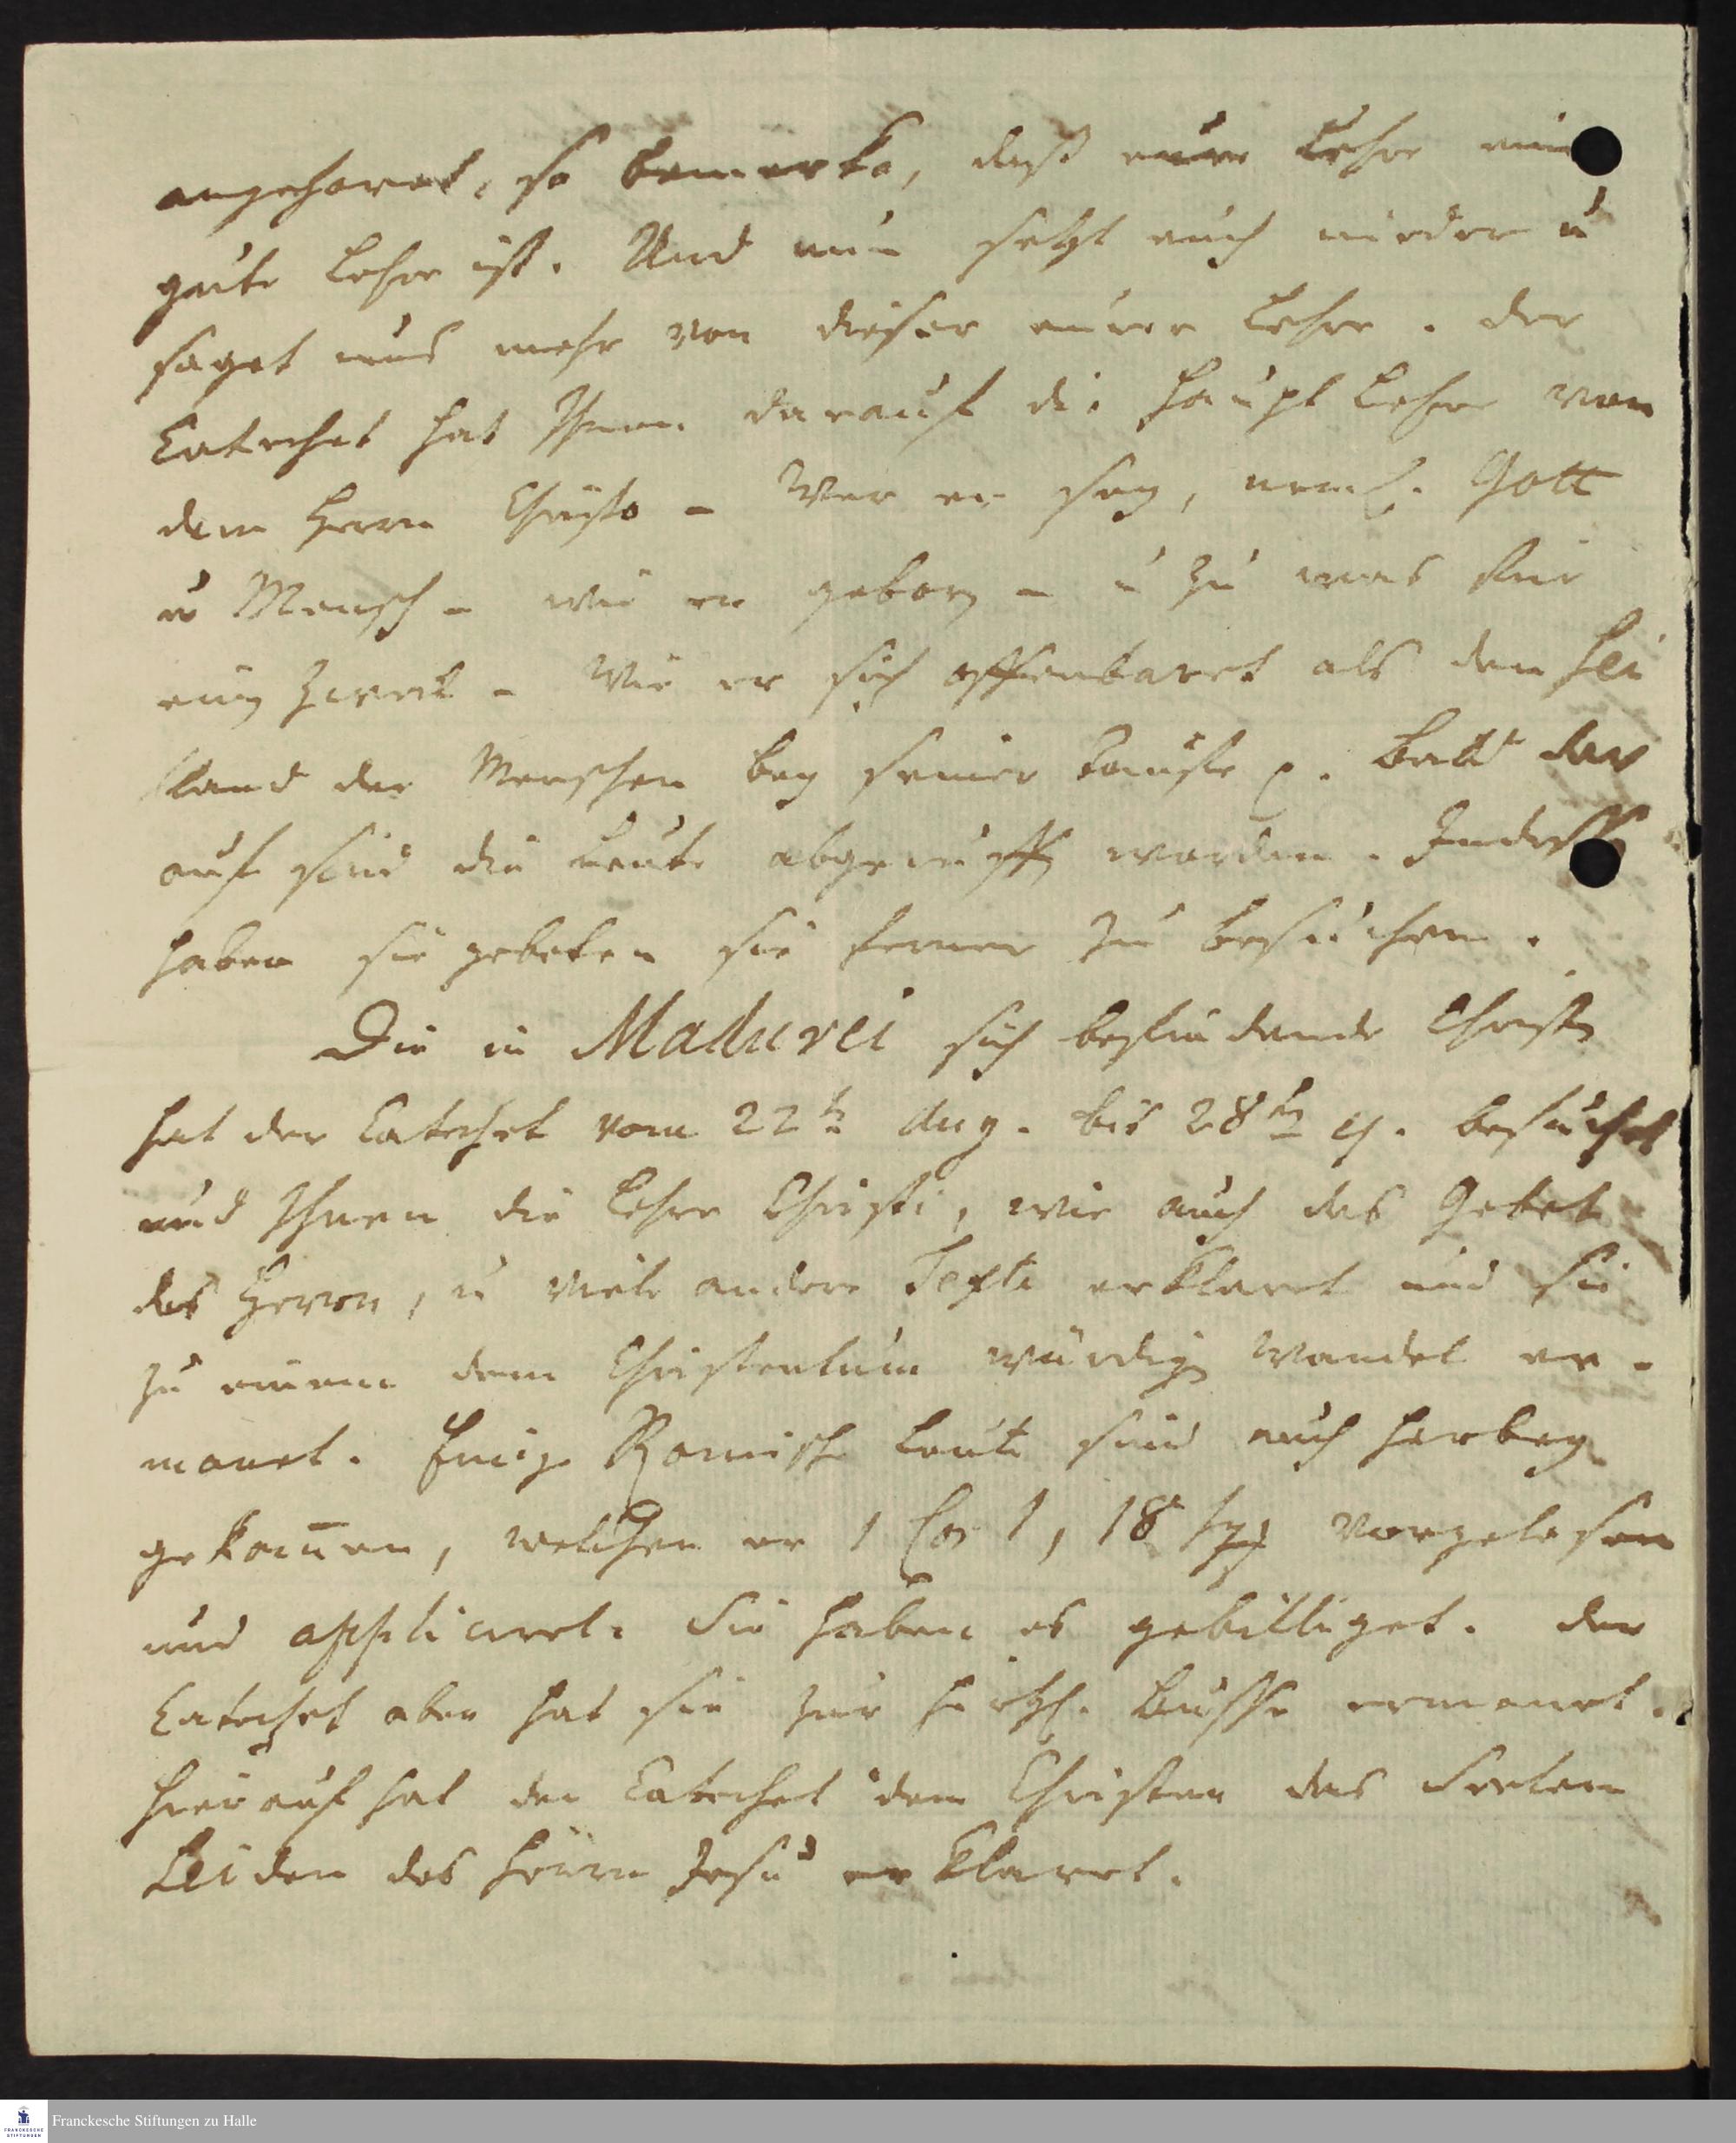 angehöret, so bemerke, daß eure Lehre eine
gute Lehre ist. Und nun setzt euch nieder u
saget uns mehr von dieser eurer Lehre. Der
Catechet hat Ihnen darauf die Haupt Lehre von
dem Herrn Christo - Wer er sey, neml. Gott
u Mensch - wie er geborn - u zu was für
ein Zweck - Wie er sich offenbaret als den Hei
land der Menschen bey seiner Taufe p. Bald dar
auf sind die Leute abgeruffn worden. Indessn
haben sie gebeten sie ferner zu besuchen.
Die in Madurei sich befindende Christn
hat der Catechet vom 22tn Aug. bis 28tn ej. besuchet
und Ihnen die Lehre Christi, wie auch das Gebet
des Herrn, u viele andere Texte erklaret und sie
zu einem dem Christentum würdign Wandel er-
manet. Einige Römische Leute sind auch herbey
gekom̄en, welchen er 1 Cor 1, 18 sqq vorgelesen
und appliciret. Sie haben es gebilliget. Der
Catechet aber hat sie zur hertzl. Busse ermanet.
Hierauf hat der Catechet den Christen das Seelen
Leiden des Herrn Jesu erklaret.
Franckesche Stiftungen zu Halle
FRANCKESCHE
STIFTUNGEN